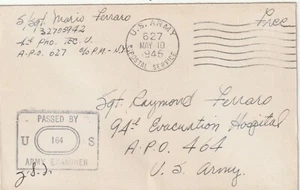 S/Sgt. Mario Ferraro
32705942
A.P.O. 627 c/o P.M. - N.Y.
U.S. ARMY
627
MAY 10
1945
POSTAL SERVICE
Free
Sgt. Raymond Ferraro
94th Evacuation Hospital
A.P.O. 464
U.S. Army.
PASSED BY
U 164 S
ARMY EXAMINER